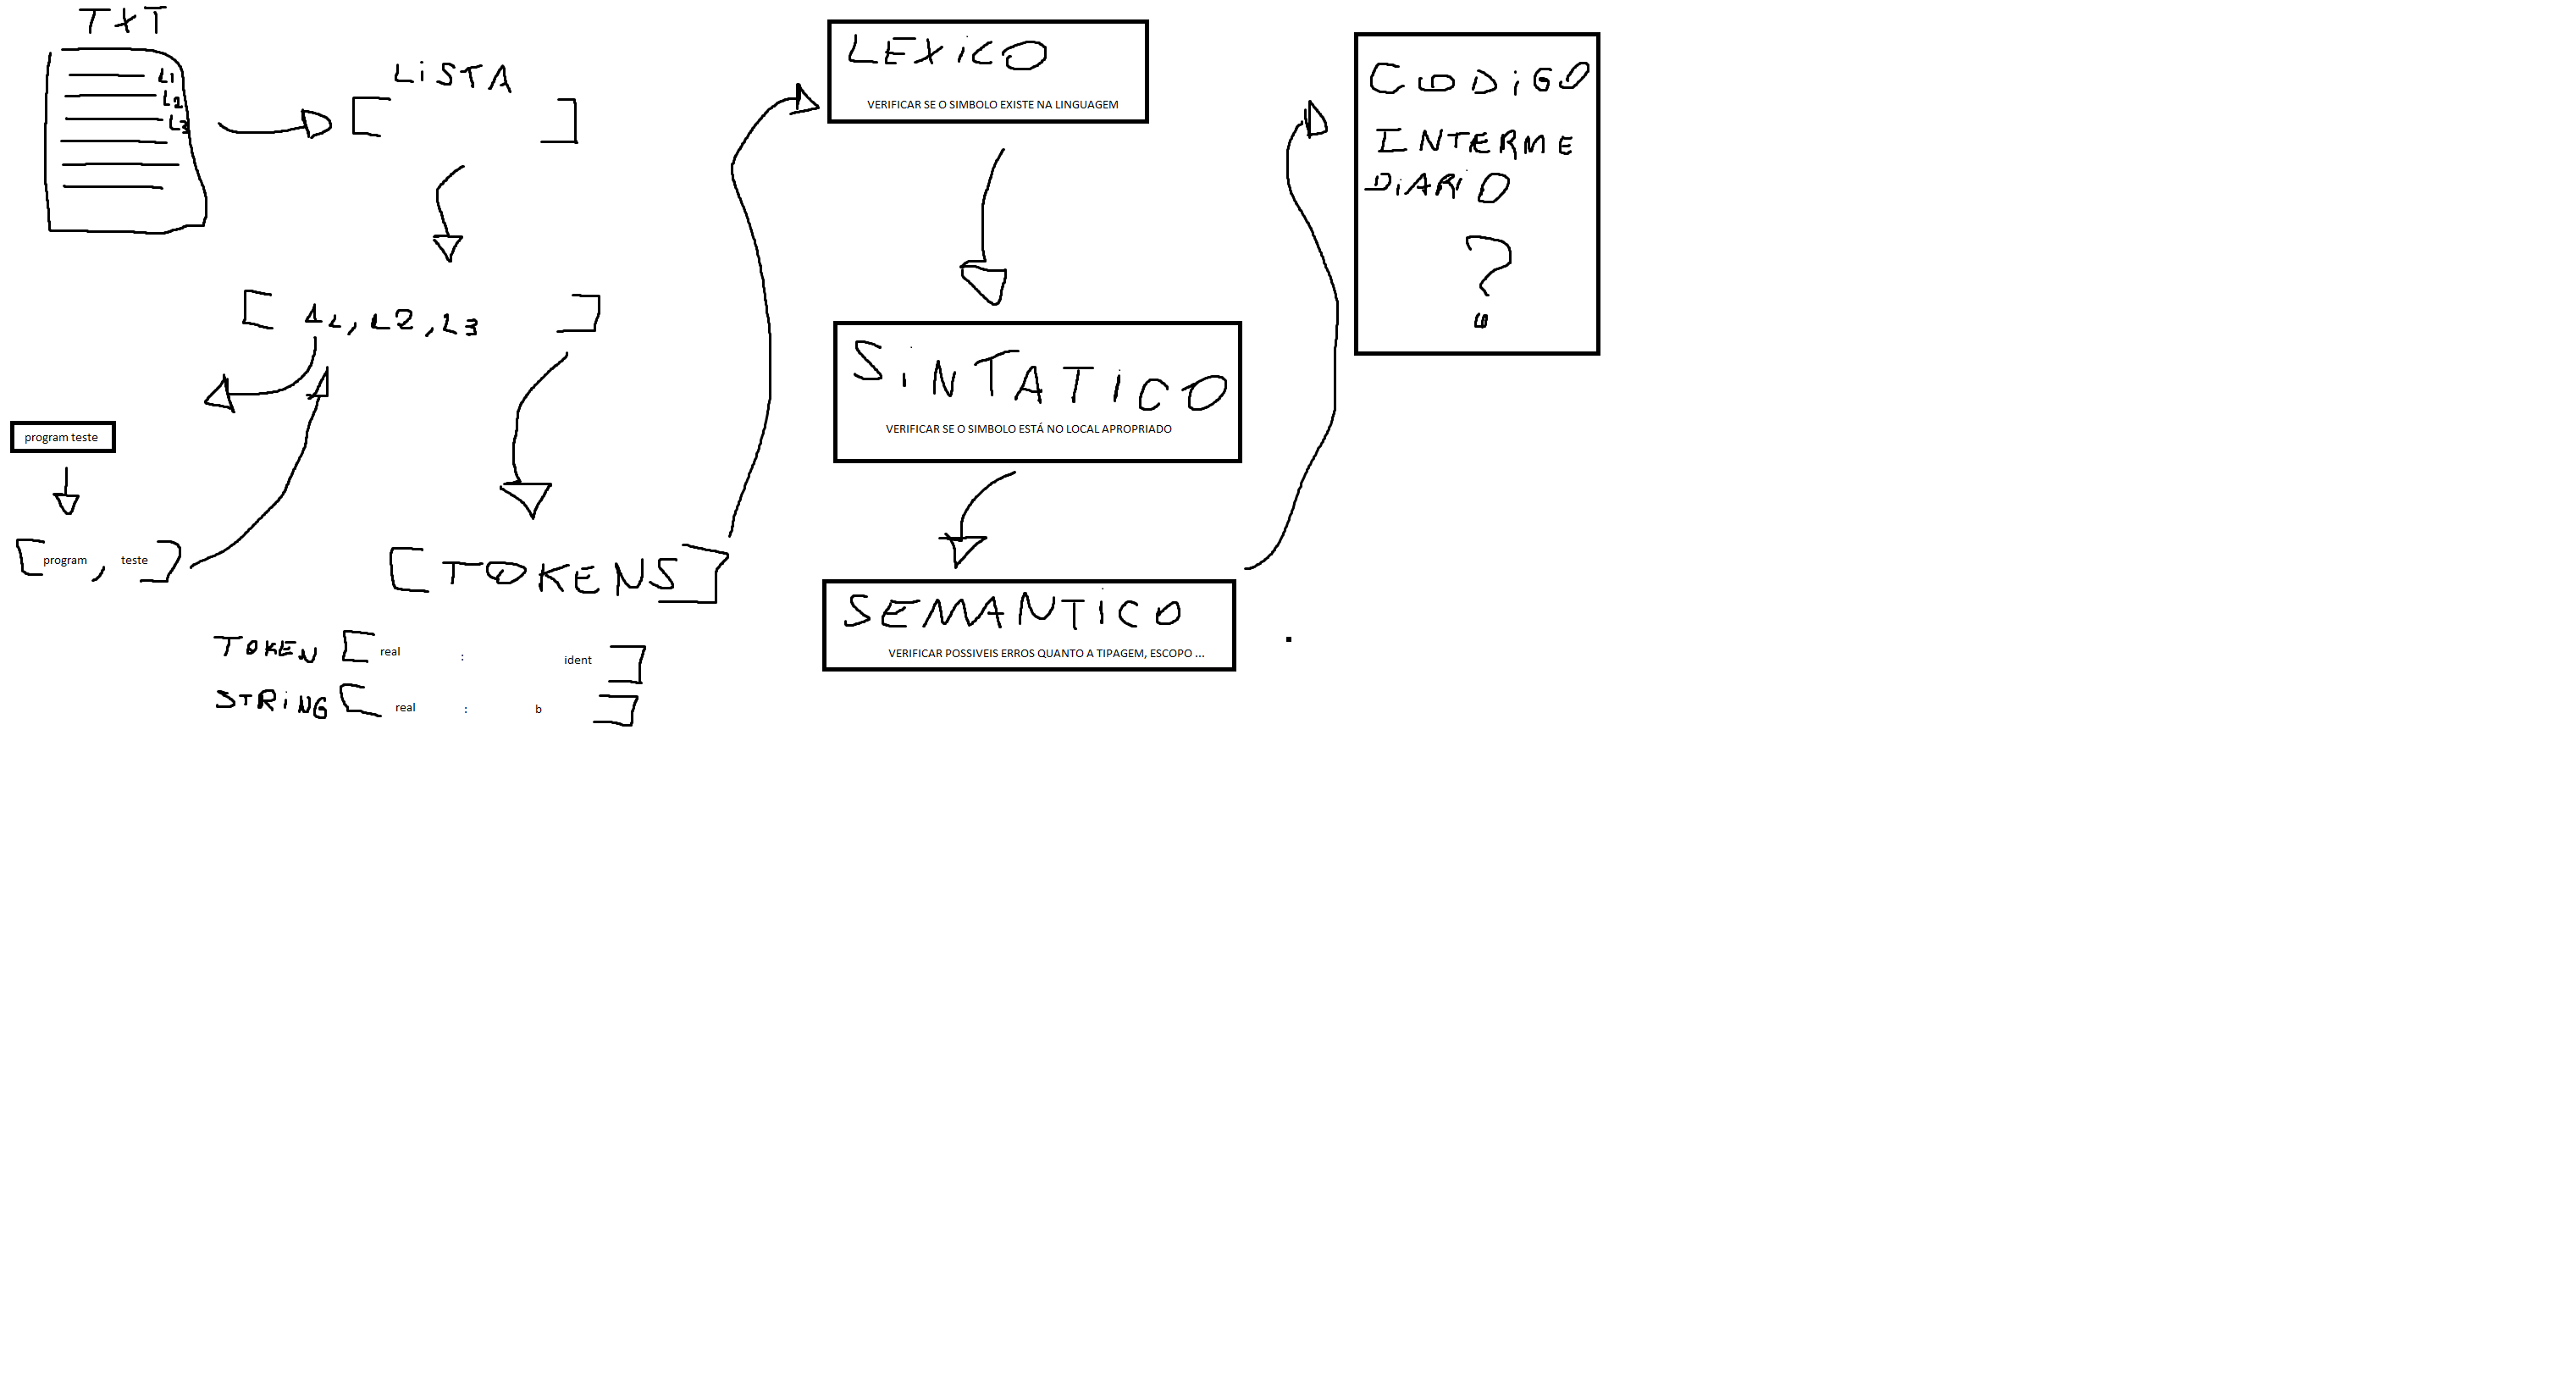 TXT
L1
L2
L3
LiSTA
[ ]
[ 1L, L2, L3 ]
program teste
[ program , teste ]
[ TOKENS ]
TOKEN [ real : ident ]
STRiNG [ real : b ]
LEXiCO
VERIFICAR SE O SIMBOLO EXISTE NA LINGUAGEM
SiNTATiCO
VERIFICAR SE O SIMBOLO ESTÁ NO LOCAL APROPRIADO
SEMANTiCO
VERIFICAR POSSIVEIS ERROS QUANTO A TIPAGEM, ESCOPO ...
CODiGO
INTERME
DiARiO
?